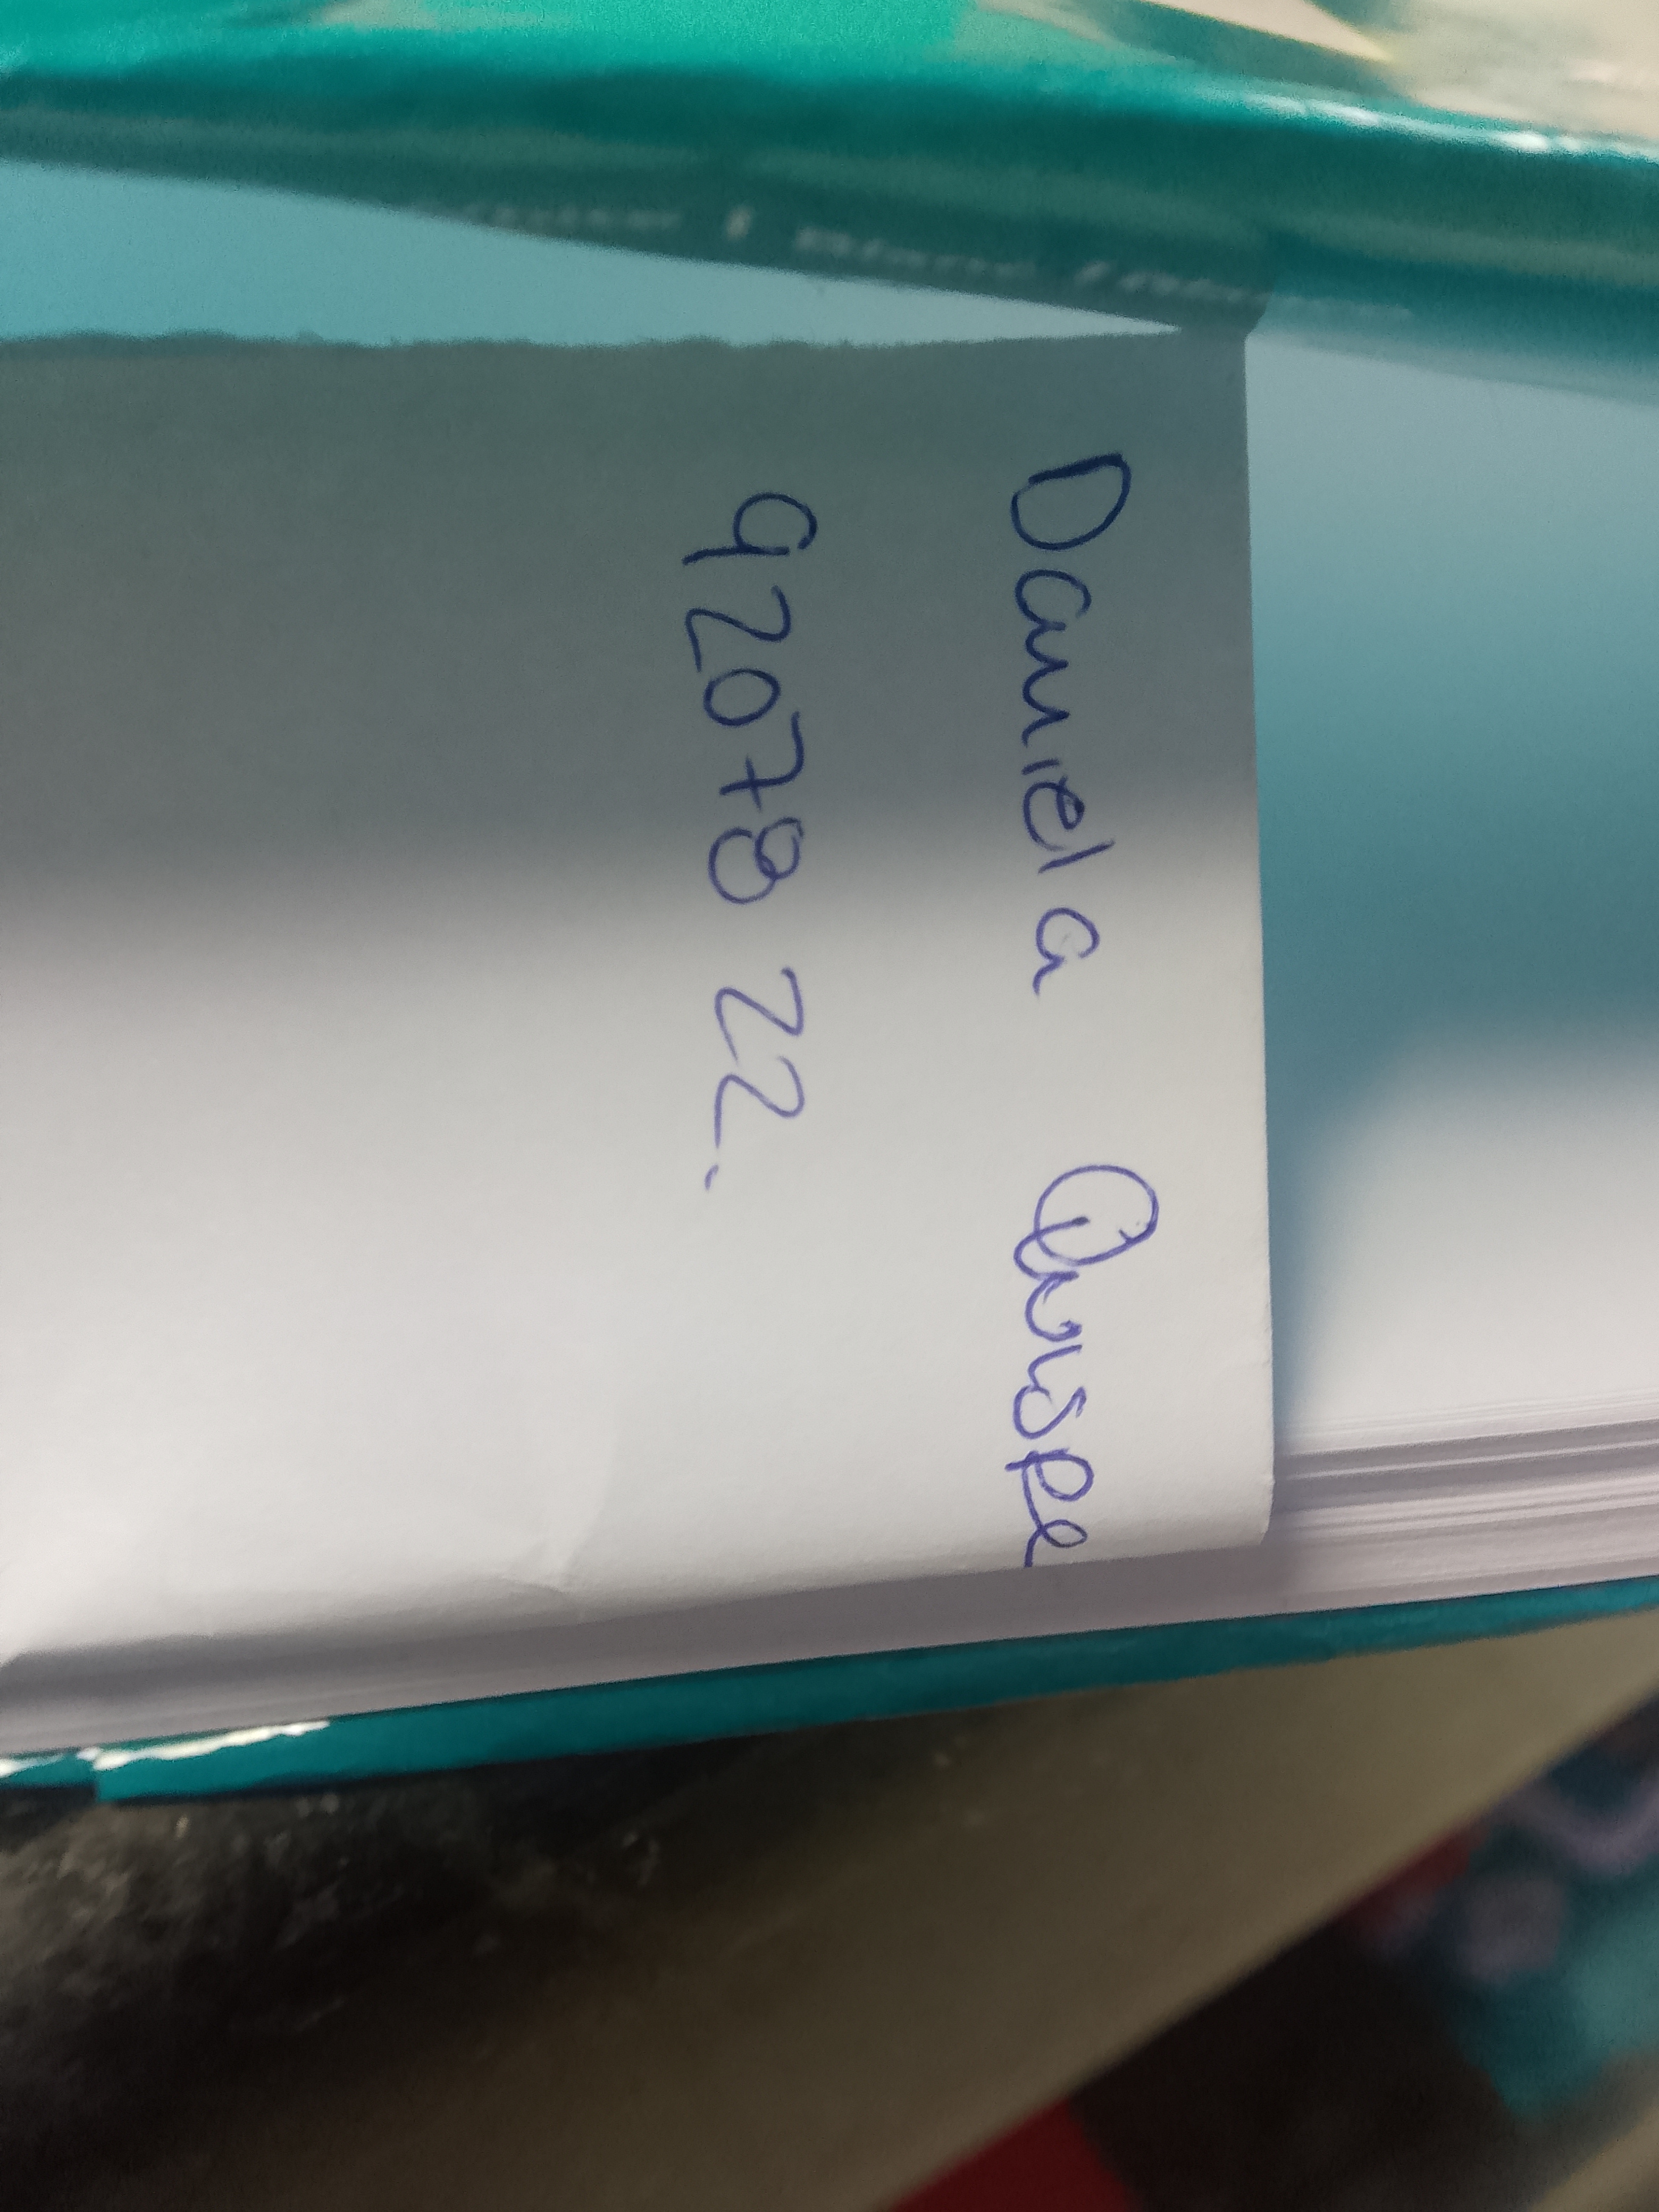 Daniela Quispe
9207822.